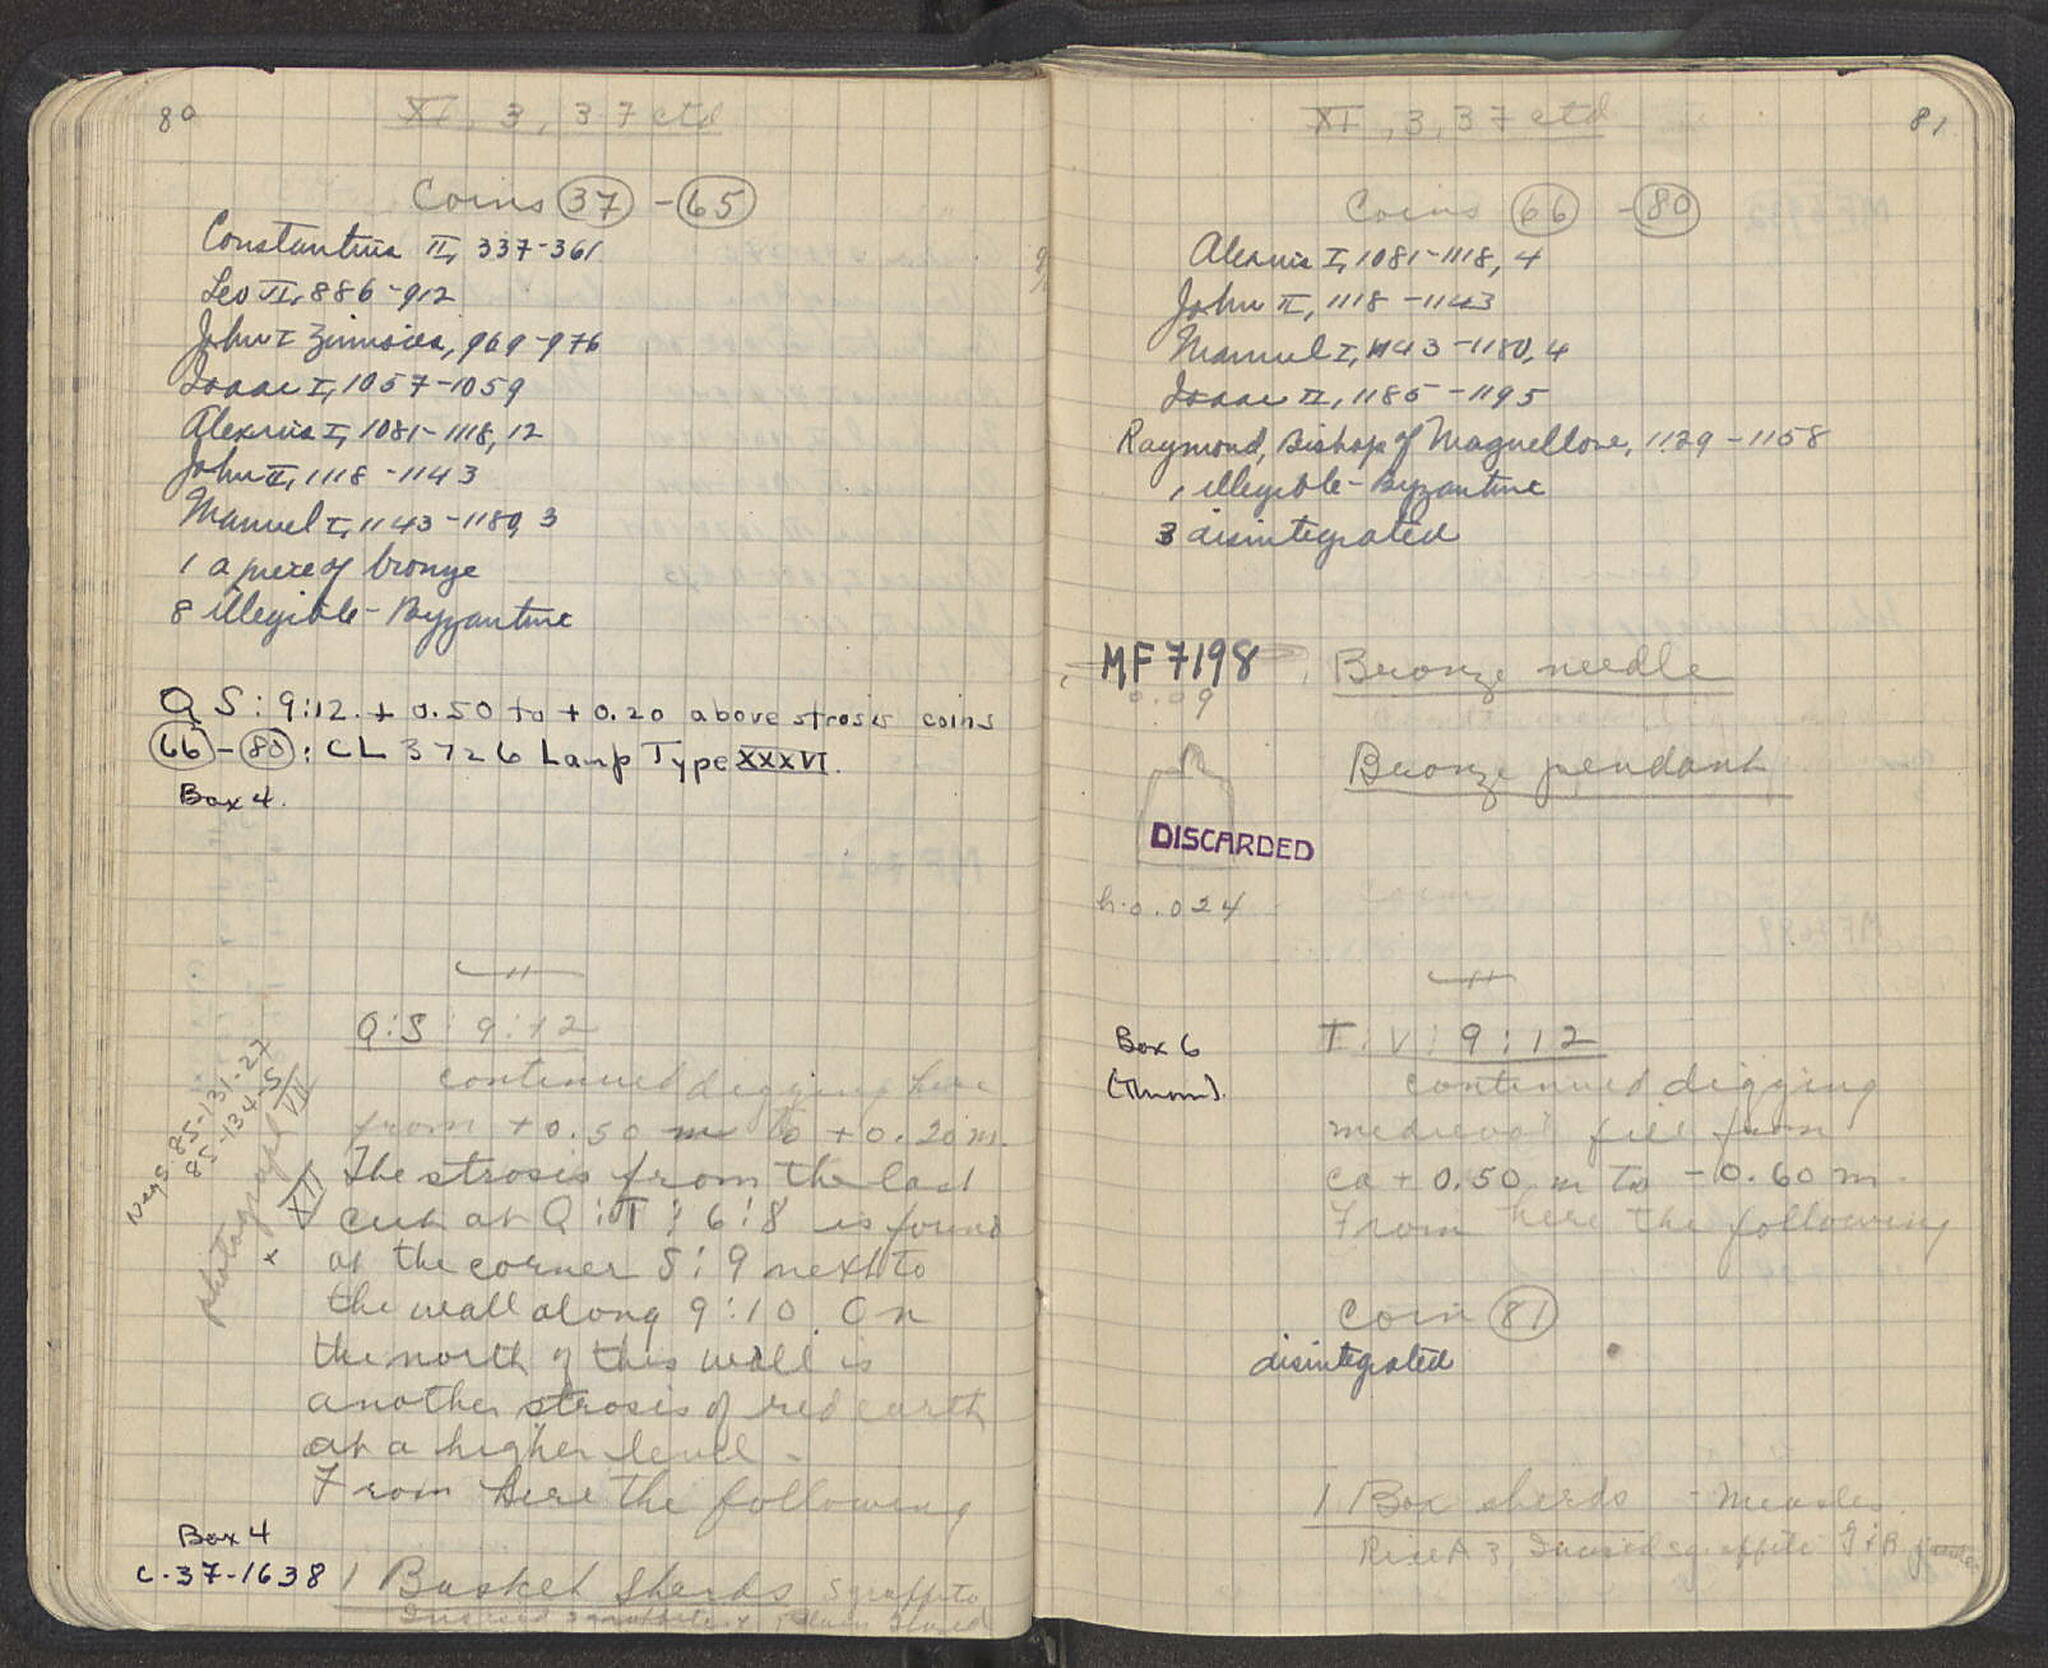 80
XI, 3, 37 ctd
Coins 37 - 65
Constantius II, 337-361
Leo VI, 886-912
John I Zimisces, 969-976
Isaac I, 1057-1059
Alexius I, 1081-1118, 12
John II, 1118-1143
Manuel I, 1143-1180, 3
1 a piece of bronze
8 illegible - Byzantine
Q S : 9:12. + 0.50 to + 0.20 above strosis coins
66 - 80 : CL 3726 Lamp Type XXXVI.
Box 4.
Q:S : 9:12
continued digging here
from + 0.50 m to + 0.20 m.
The strosis from the last
cut at Q:T : 6:8 is found
at the corner S:9 next to
the wall along 9:10. On
the north of this wall is
another strosis of red earth
at a higher level -
From here the following
Negs. 85-131-27
85-134-5
photograph VII
XII
x
Box 4
C-37-1638
1 Basket Sherds Sgraffito
Incised sgraffito, Plain Glazed
81
XI, 3, 37 ctd
Coins 66 - 80
Alexius I, 1081-1118, 4
John II, 1118-1143
Manuel I, 1143-1180, 4
Isaac II, 1185-1195
Raymond, Bishop of Maguellone, 1129-1158
1 illegible - Byzantine
3 disintegrated
MF 7198
0.09
Bronze needle
Bronze pendant
DISCARDED
h. 0.024
Box 6
T:V : 9:12
continued digging
medieval fill from
ca + 0.50 m to - 0.60 m.
From here the following
Coin 81
disintegrated
1 Box sherds - Measles
Incised sgraffito